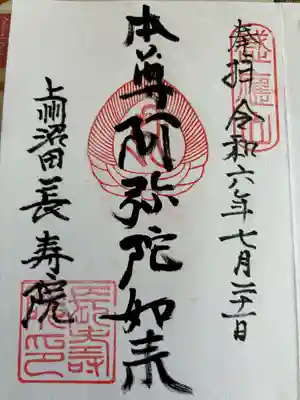 奉拝 令和六年七月二十一日
本尊阿弥陀如来
上州沼田長寿院